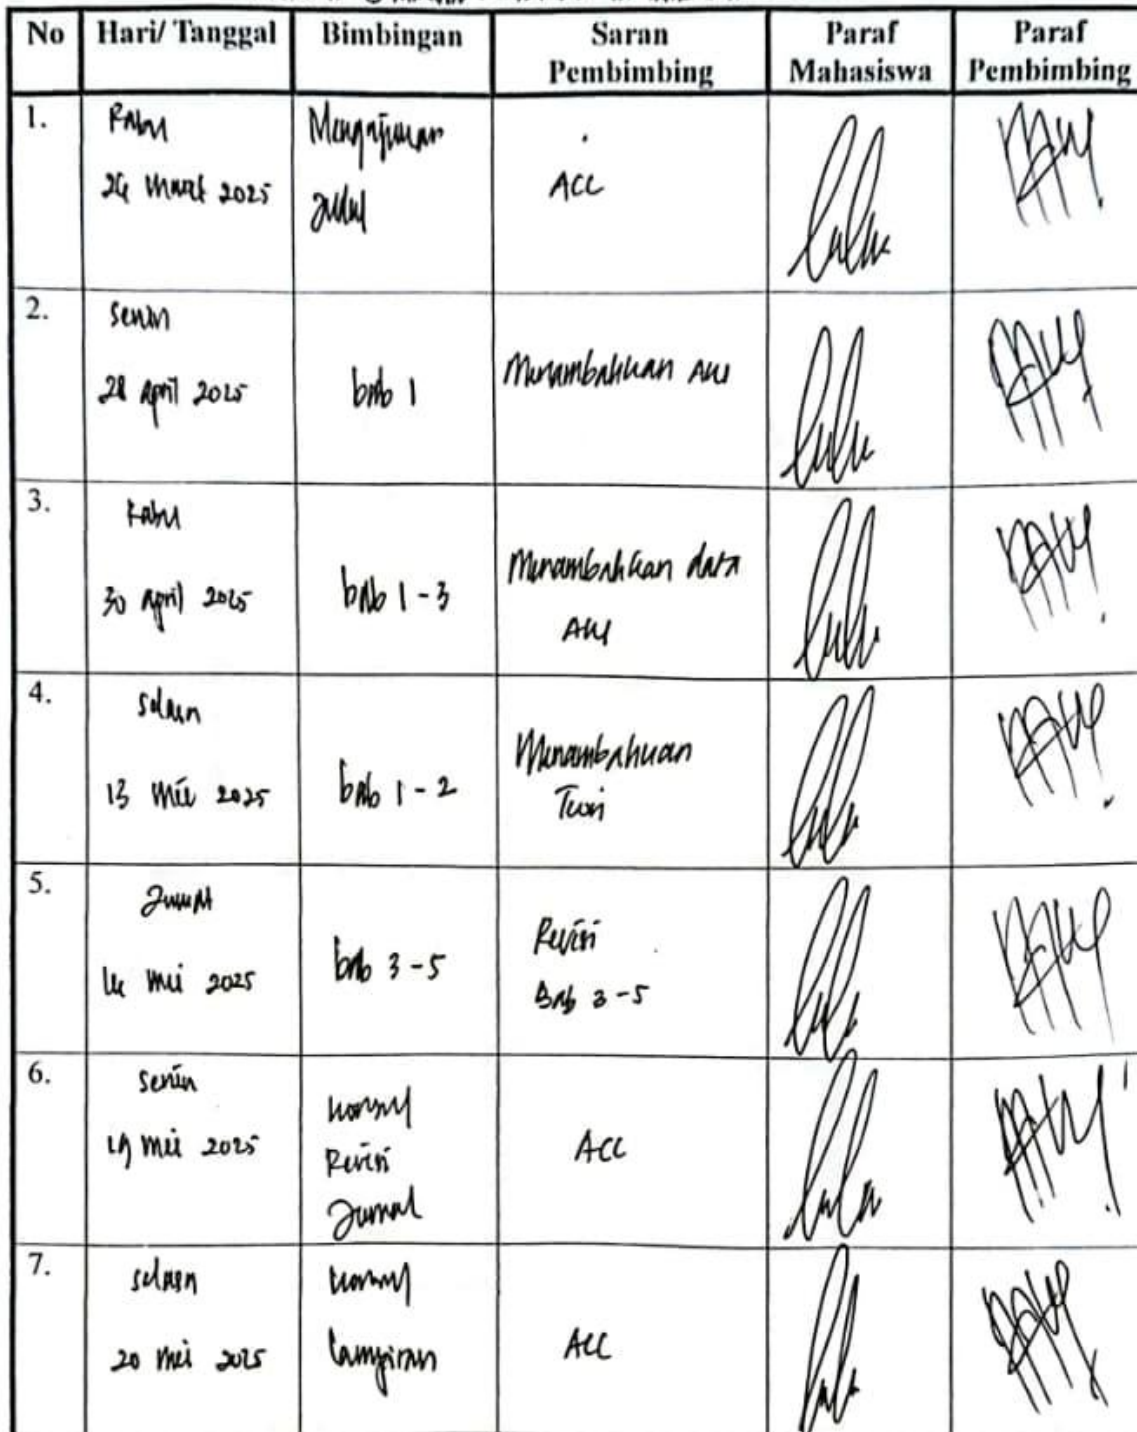 No Hari/ Tanggal Bimbingan Saran Pembimbing Paraf Mahasiswa Paraf Pembimbing
1. Rabu Mengajukan
24 Maret 2025 Judul ACC
2. Senin
28 april 2025 bab 1 Menambahkan AKI
3. Rabu
30 april 2025 bab 1-3 Menambahkan data
AKI
4. selasa
13 Mei 2025 bab 1-2 Menambahkan
Teori
5. Jumat
mei 2025 bab 3-5 Revisi
Bab 3-5
6. senin
19 mei 2025 konsul
Revisi
Jurnal
ACC
7. selasa
20 mei 2025 konsul
lampiran
ACC